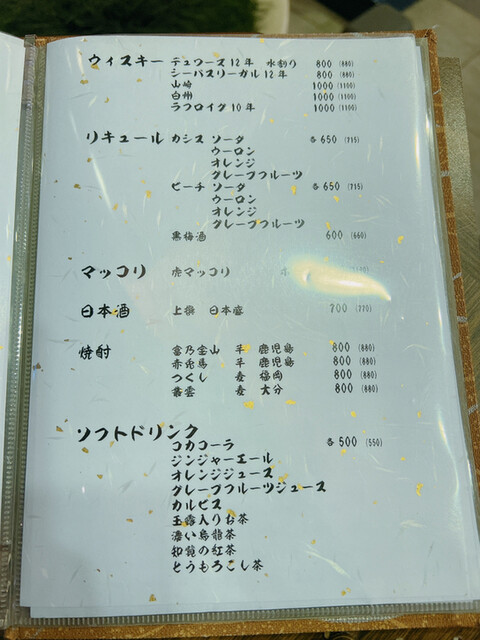 ウィスキー デュワーズ12年 水割り 800 (880)
シーバスリーガル12年 800 (880)
山崎 1000 (1100)
白州 1000 (1100)
ラフロイグ10年 1000 (1100)
リキュール カシス ソーダ 各650 (715)
ウーロン
オレンジ
グレープフルーツ
ピーチ ソーダ 各650 (715)
ウーロン
オレンジ
グレープフルーツ
黒梅酒 600 (660)
マッコリ 虎マッコリ
日本酒 上撰 日本盛 700 (770)
焼酎 富乃宝山 芋 鹿児島 800 (880)
赤兎馬 芋 鹿児島 800 (880)
つくし 麦 福岡 800 (880)
兼雲 麦 大分 800 (880)
ソフトドリンク
コカコーラ 各500 (550)
ジンジャーエール
オレンジジュース
グレープフルーツジュース
カルピス
玉露入りお茶
濃い烏龍茶
知覧の紅茶
とうもろこし茶